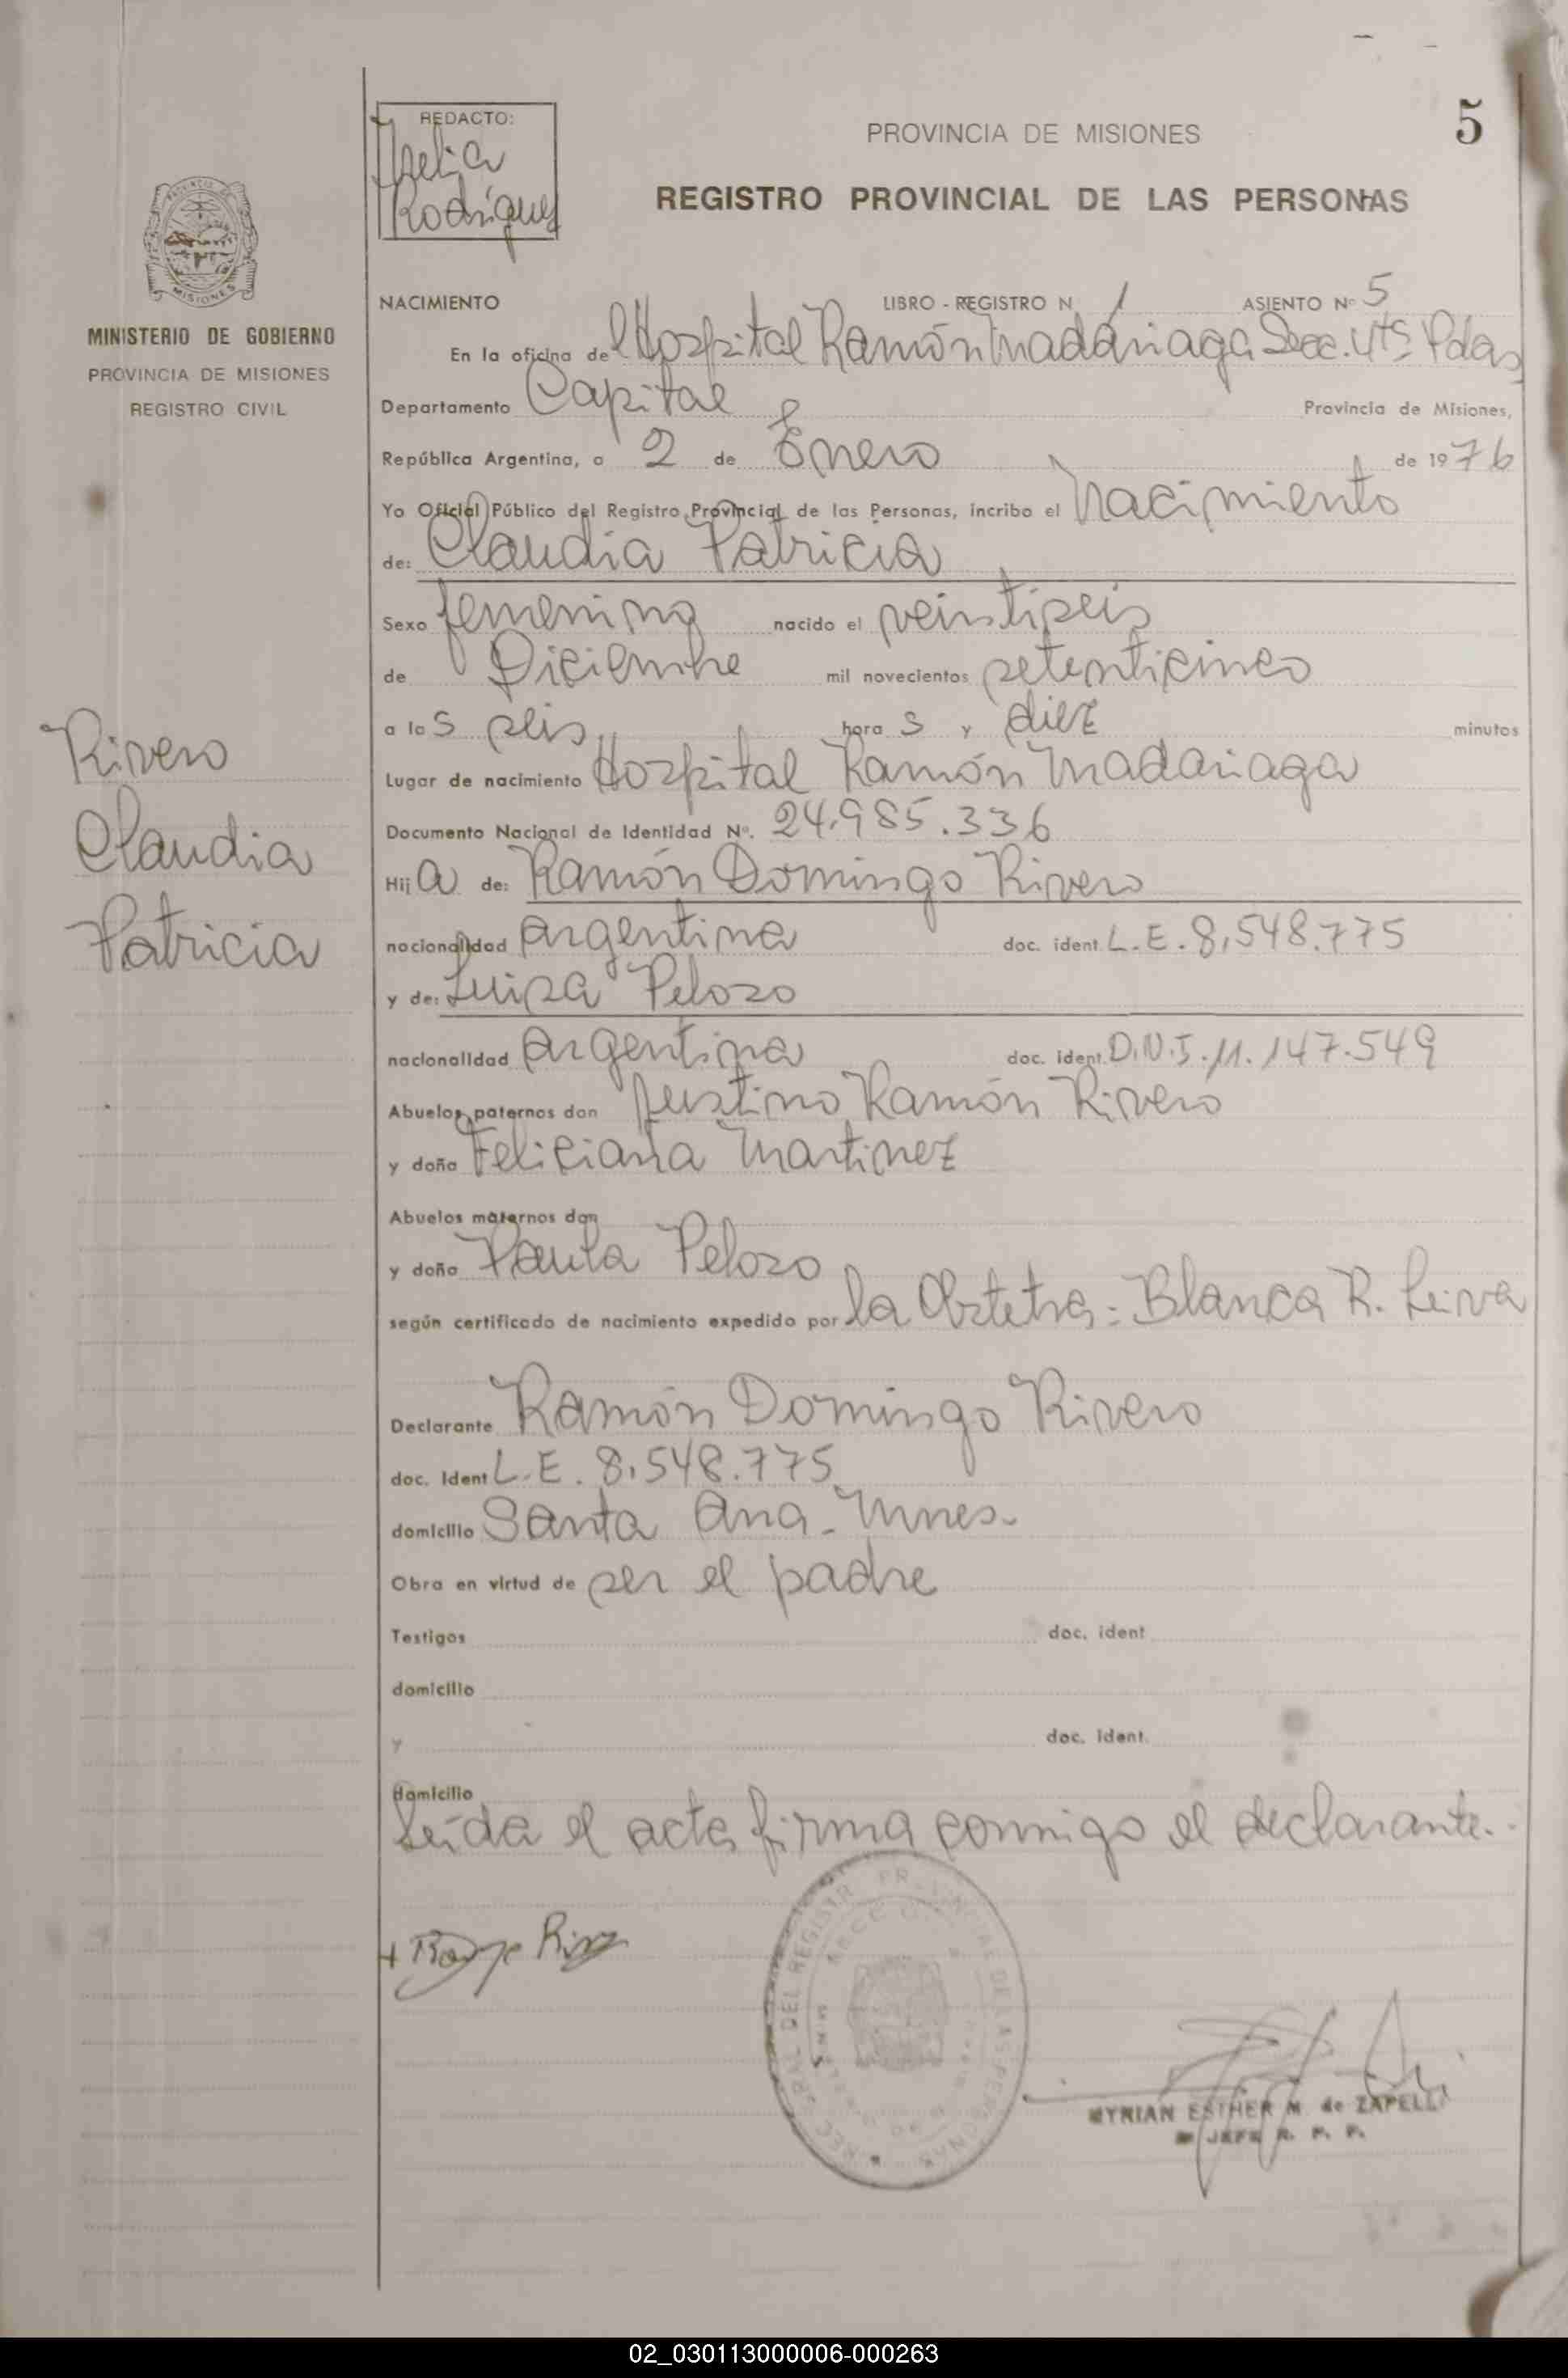 5
REDACTO:
Rodríguez
PROVINCIA DE MISIONES
REGISTRO PROVINCIAL DE LAS PERSONAS
MISIONES
MINISTERIO DE GOBIERNO
PROVINCIA DE MISIONES
REGISTRO CIVIL
Rivero
Claudia
Patricia
NACIMIENTO LIBRO - REGISTRO N 1 ASIENTO Nº 5
En la oficina del Hospital Ramón Madariaga Secc. 4ta Pdas
Departamento Capital Provincia de Misiones,
República Argentina, a 2 de Enero de 1976
Yo Oficial Público del Registro Provincial de las Personas, incribo el Nacimiento
de: Claudia Patricia
Sexo femenino nacido el veintiseis
de Diciembre mil novecientos setenticinco
a las seis horas y diez minutos
Lugar de nacimiento Hospital Ramón Madariaga
Documento Nacional de Identidad Nº. 24.985.336
Hija de: Ramón Domingo Rivero
nacionalidad argentina doc. ident. L.E. 8.548.775
y de: Luisa Pelozo
nacionalidad argentina doc. ident. D.N.I. 11.147.549
Abuelos paternos don Justino Ramón Rivero
y doña Feliciana Martinez
Abuelos maternos don
y doña Paula Pelozo
según certificado de nacimiento expedido por la Obstetra: Blanca R. Leiva
Declarante Ramón Domingo Rivero
doc. Ident L.E. 8.548.775
domicilio Santa Ana - Mnes.
Obra en virtud de ser el padre
Testigos doc. ident
domicilio
y doc. ident.
domicilio
Leída el acta firma conmigo el declarante.
MYRIAN ESTHER M. de ZAPELLI
JEFE R. P. P.
02_030113000006-000263